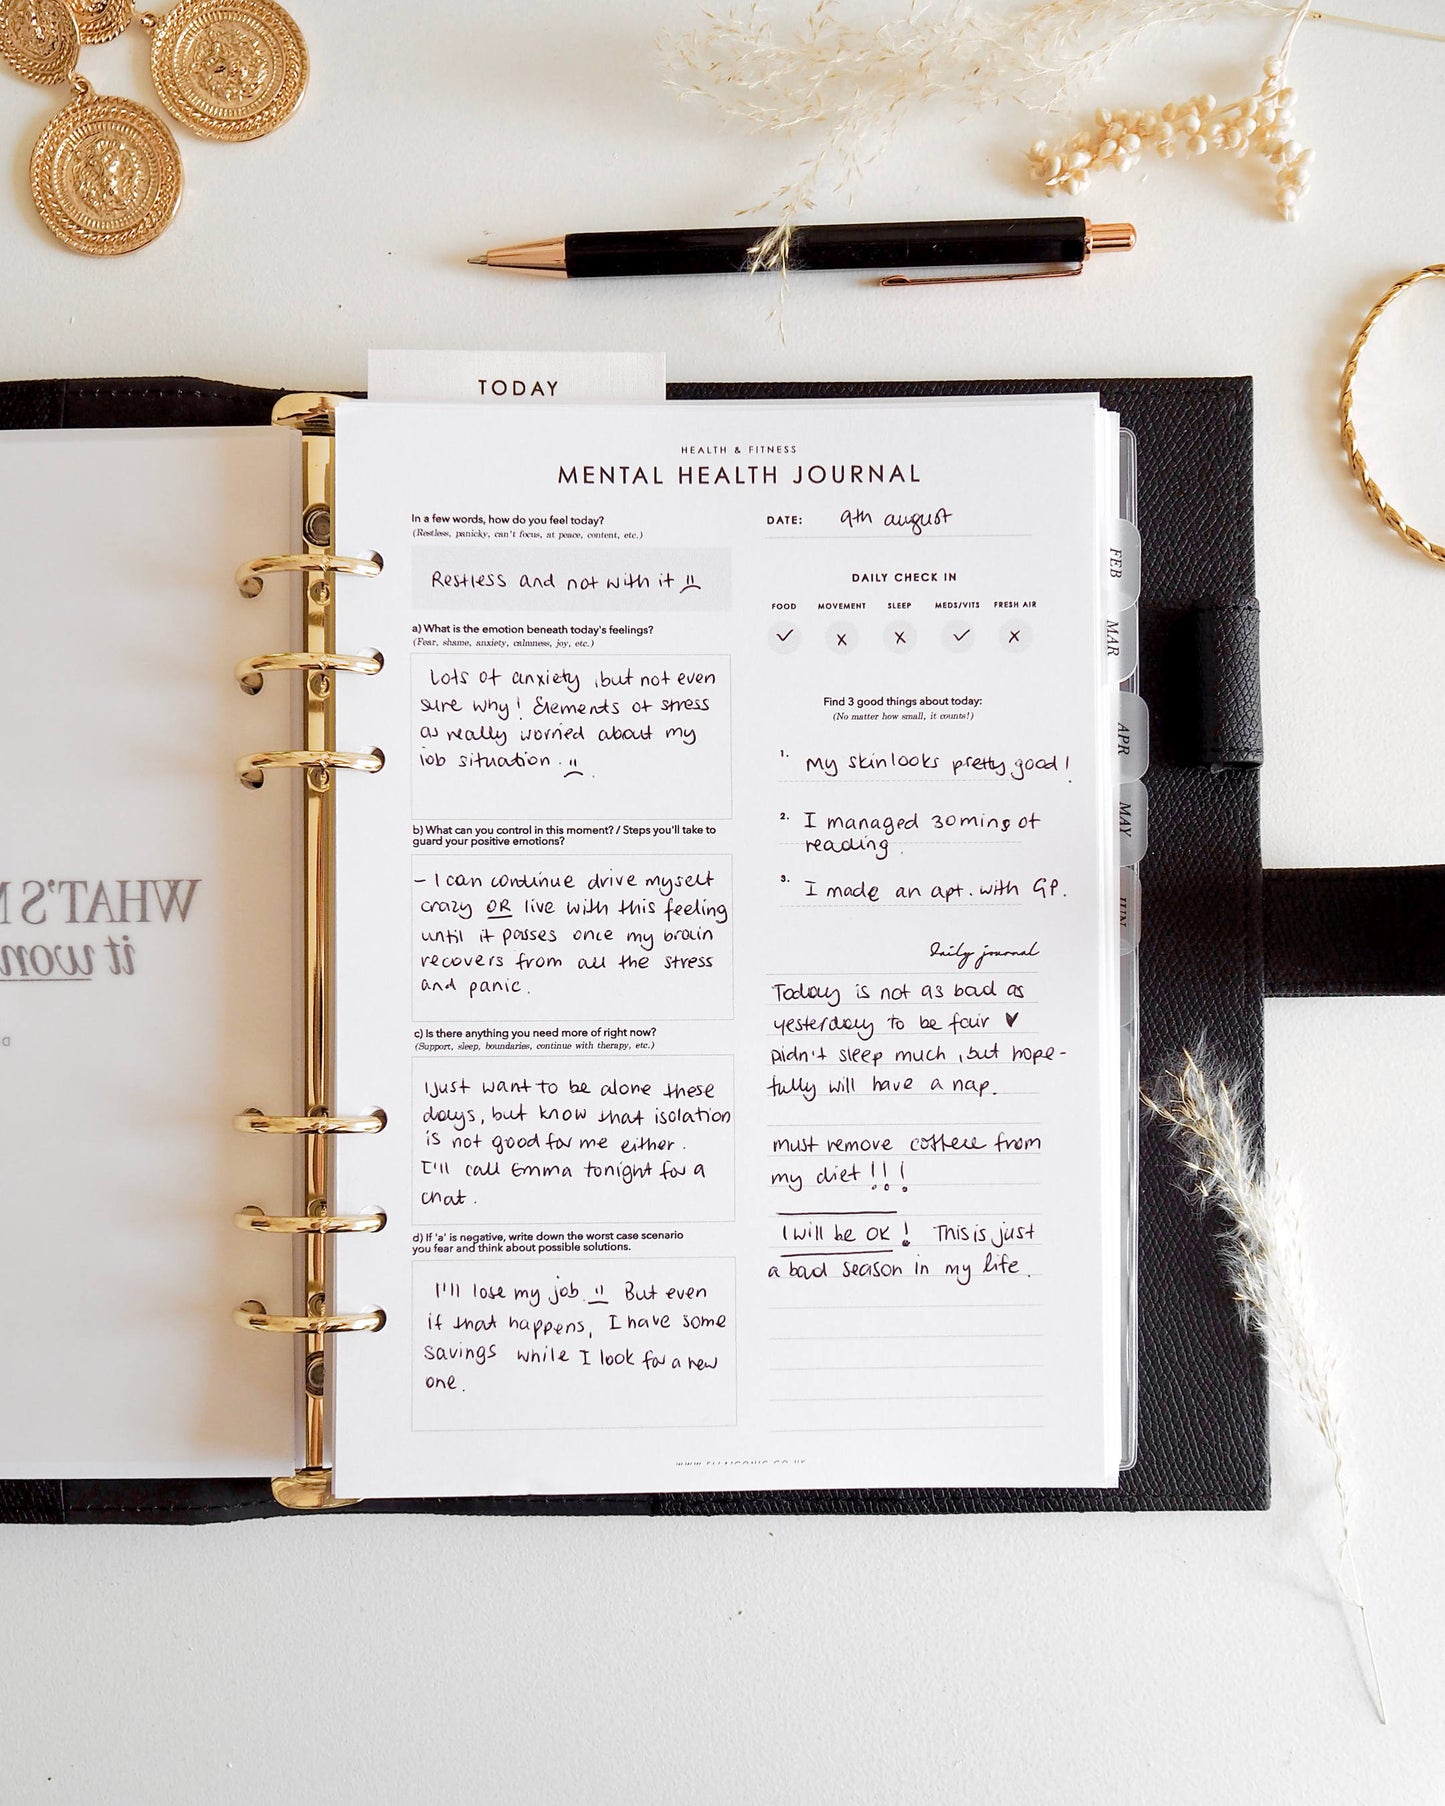 TODAY
HEALTH & FITNESS
MENTAL HEALTH JOURNAL
In a few words, how do you feel today?
(Restless, panicky, can't focus, at peace, content, etc.)
Restless and not with it
a) What is the emotion beneath today's feelings?
(Fear, shame, anxiety, calmness, joy, etc.)
Lots of anxiety, but not even
sure why! Elements of stress
as really worried about my
job situation.
b) What can you control in this moment? / Steps you'll take to
guard your positive emotions?
- I can continue drive myself
crazy OR live with this feeling
until it passes once my brain
recovers from all the stress
and panic.
c) Is there anything you need more of right now?
(Support, sleep, boundaries, continue with therapy, etc.)
I just want to be alone these
days, but know that isolation
is not good for me either.
I'll call Emma tonight for a
chat.
d) If 'a' is negative, write down the worst case scenario
you fear and think about possible solutions.
I'll lose my job. But even
if that happens, I have some
savings while I look for a new
one.
DATE: 9th august
DAILY CHECK IN
FOOD MOVEMENT SLEEP MEDS/VITS FRESH AIR
✓ x x ✓ x
Find 3 good things about today:
(No matter how small, it counts!)
1. My skin looks pretty good!
2. I managed 30 mins of
reading.
3. I made an apt. with GP.
Daily journal
Today is not as bad as
yesterday to be fair ♥
Didn't sleep much, but hope-
fully will have a nap.
must remove coffeee from
my diet!!!
I will be OK! This is just
a bad season in my life.
FEB
MAR
APR
MAY
JUN
WHAT'S
it won